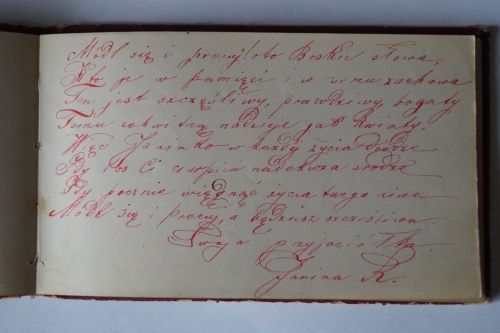 Módl się i pracuj! oto Boskie słowa,
Kto je w pamięci i w sercu zachowa
Ten jest szczęśliwy, prawdziwy, bogaty
Temu zakwitną nadzieje jak kwiaty.
Więc Janinko w każdej życia drodze
Gdy los Ci cierpień nadokucza srodze
Gdy pocznie więdnąć życia twego niwa
Módl się i pracuj, a będziesz szczęśliwa
Twoja przyjaciółka
Janina R.